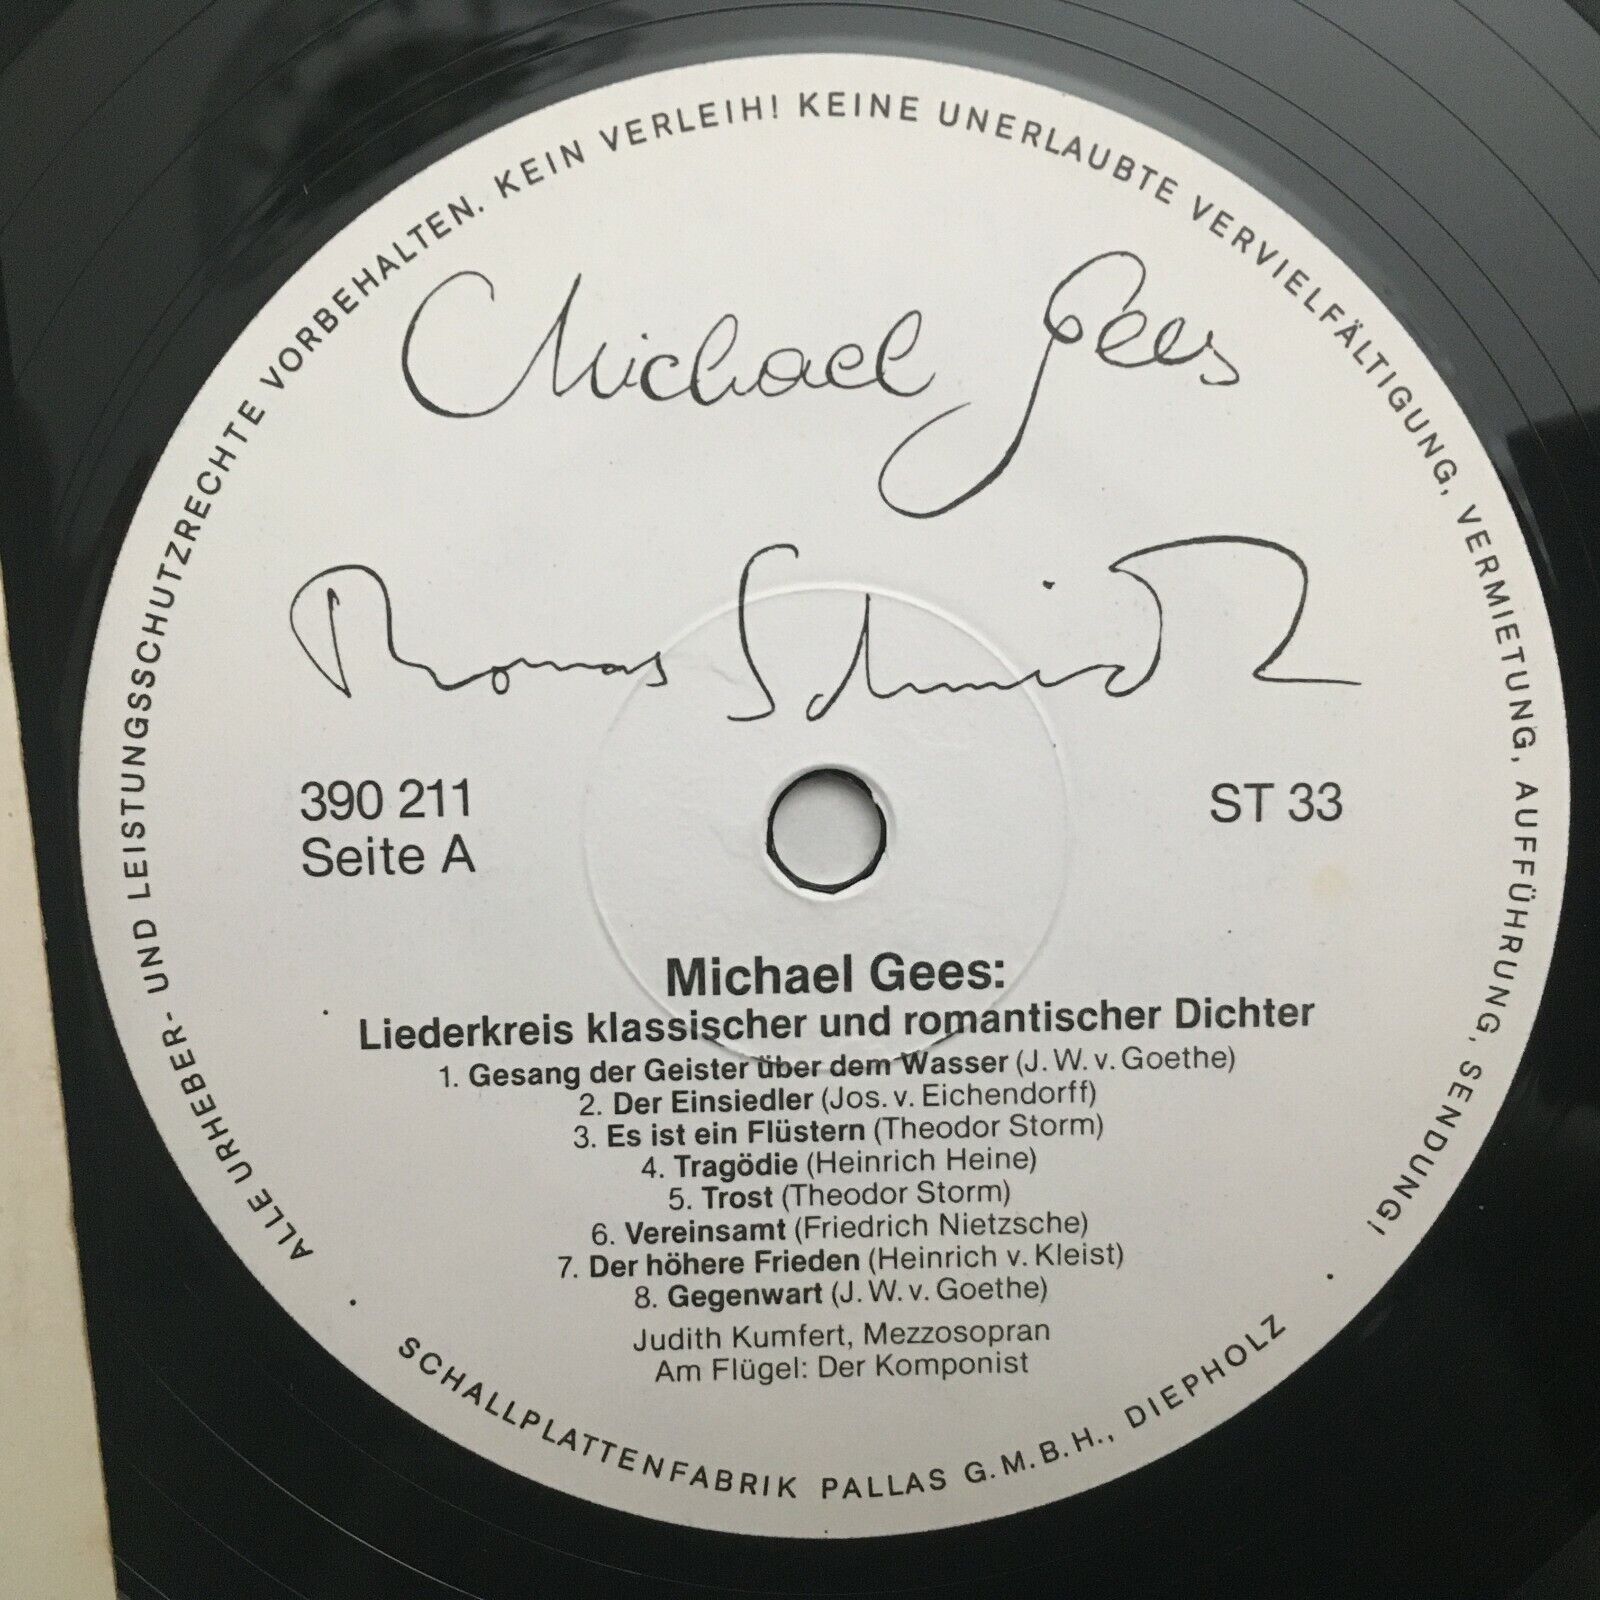 ALLE URHEBER- UND LEISTUNGSSCHUTZRECHTE VORBEHALTEN. KEIN VERLEIH! KEINE UNERLAUBTE VERVIELFÄLTIGUNG, VERMIETUNG, AUFFÜHRUNG, SENDUNG!
Michael Gees
Thomas Schmidt
390 211
Seite A
ST 33
Michael Gees:
Liederkreis klassischer und romantischer Dichter
1. Gesang der Geister über dem Wasser (J. W. v. Goethe)
2. Der Einsiedler (Jos. v. Eichendorff)
3. Es ist ein Flüstern (Theodor Storm)
4. Tragödie (Heinrich Heine)
5. Trost (Theodor Storm)
6. Vereinsamt (Friedrich Nietzsche)
7. Der höhere Frieden (Heinrich v. Kleist)
8. Gegenwart (J. W. v. Goethe)
Judith Kumfert, Mezzosopran
Am Flügel: Der Komponist
SCHALLPLATTENFABRIK PALLAS G.M.B.H., DIEPHOLZ